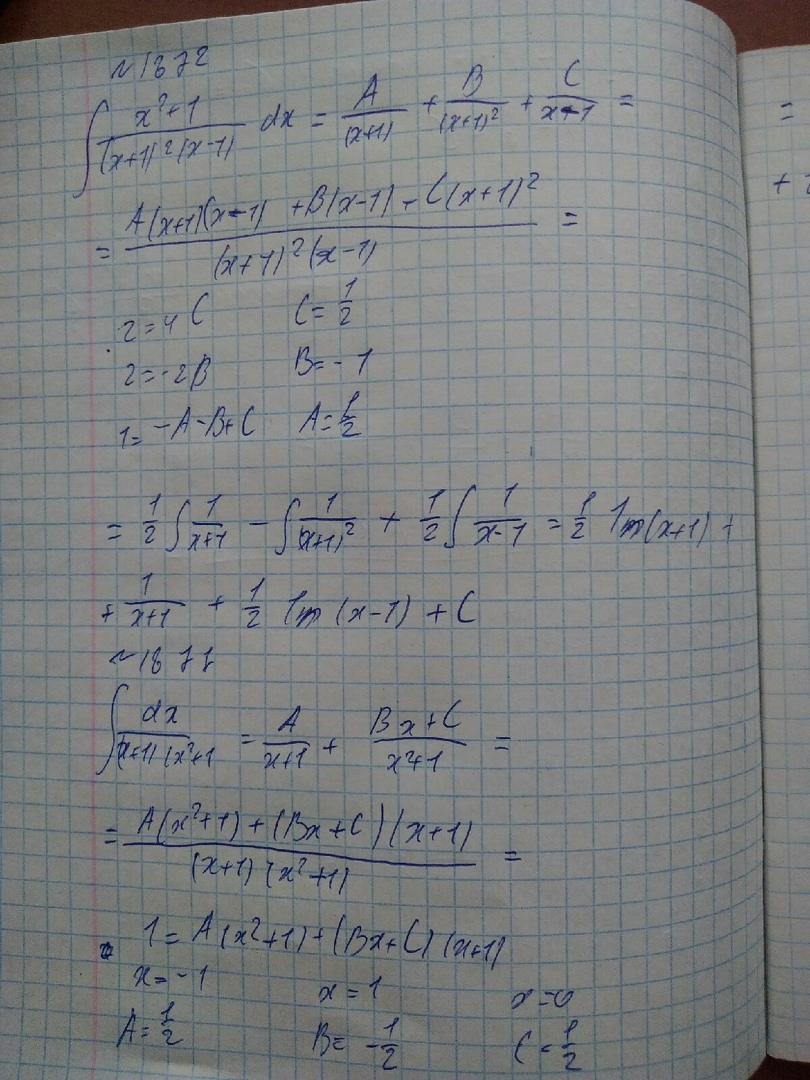 ~1872
∫ x²+1 / (x+1)²(x-1) dx = A/(x+1) + B/(x+1)² + C/x-1 =
= A(x+1)(x-1) +B(x-1) + C(x+1)² / (x+1)²(x-1) =
2=4C C=1/2
2=-2B B=-1
1=-A-B+C A=1/2
= 1/2 ∫ 1/x+1 - ∫ 1/(x+1)² + 1/2 ∫ 1/x-1 = 1/2 ln(x+1) +
+ 1/x+1 + 1/2 ln(x-1) + C
~1877
∫ dx / (x+1)(x²+1 = A/x+1 + Bx+C/x²+1 =
= A(x²+1)+(Bx+C)(x+1) / (x+1)(x²+1) =
1= A(x²+1)+(Bx+C)(x+1)
x=-1 x=1 x=0
A=1/2 B=-1/2 C=1/2
=
+